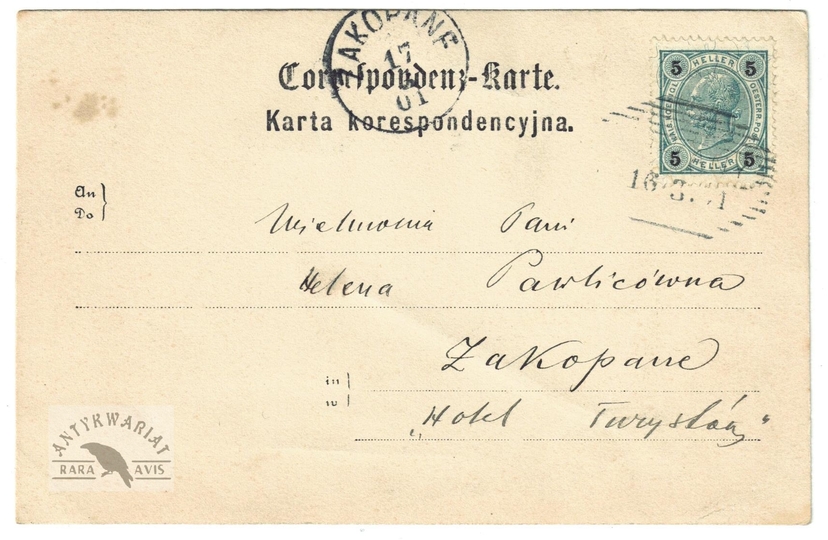 ZAKOPANE
17
01
Correspondenz-Karte.
Karta korespondencyjna.
5 HELLER 5
KAIS. KÖNIGL. OESTERR. POST
5 HELLER 5
16 3. 1
An
Do
Wielmożna Pani
Helena Pawlicówna
Zakopane
in
w
„Hotel Turystów"
ANTYKWARIAT
RARA AVIS